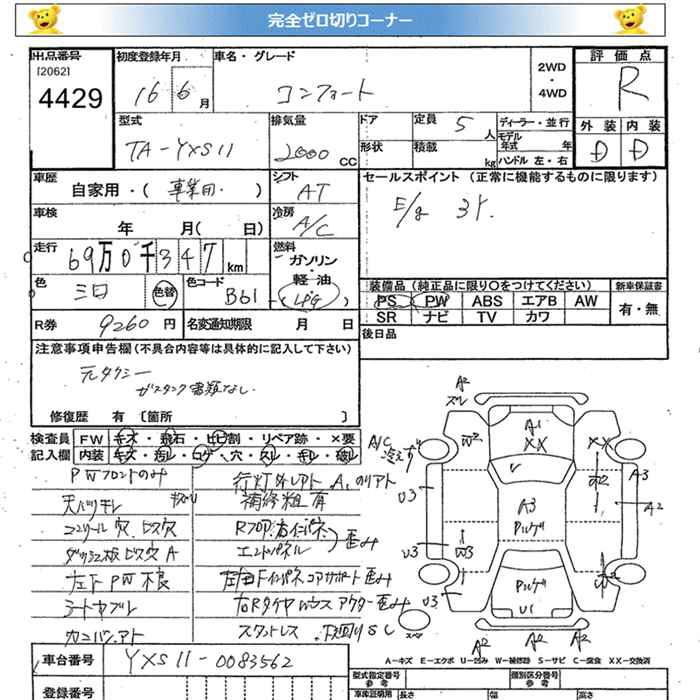 完全ゼロ切りコーナー
出品番号 初度登録年月 車名・グレード 2WD・4WD 評価点
[2062] 4429 16 6月 コンフォート R
型式 排気量 ドア 定員 5人 ディーラー・並行 外装 内装
TA-YXS11 2000 CC 形状 積載 kg モデル年式 年 ハンドル 左・右 D D
車歴 シフト セールスポイント (正常に機能するものに限ります)
自家用・(事業用) AT E/g ヨイ.
車検 冷房
年 月( 日) A/C
走行 燃料
69万0千347km ガソリン・軽油・(LPG)
色 色コード 装備品 (純正品に限り〇をつけてください) 新車保証書
三口 色替 B61 PS PW ABS エアB AW 有・無
SR ナビ TV カワ
R券 9260円 名変通知期限 月 日 後日品
注意事項申告欄 (不具合内容等は具体的に記入して下さい)
元タクシー
ガスタンク書類なし.
修復歴 有 [箇所 ]
検査員 FW キズ・飛石・ヒビ割・リペア跡・×要
記入欄 内装 キズ・汚レ・コゲ・穴・スレ・キレ・破レ
A/C冷えず
PWフロントのみ
天バリキレ 補修粗有
コンソール穴.ビス穴
ダッシュ板ビス穴A エンドパネル 歪み
左下PW不良
シートヤブレ
カンバンアト 下廻りSC
A2 A1 XX U2 XX U3 A3 A2
A3 U3 W3 U3 U1 A2 A2 A2
A-キズ E-エクボ U-凹み W-補修跡 S-サビ C-腐食 XX-交換済
車台番号 YXS11-0083562 型式指定番号 参考 類別区分番号 参考
登録番号 車庫証明用 参考 長さ 幅 高さ